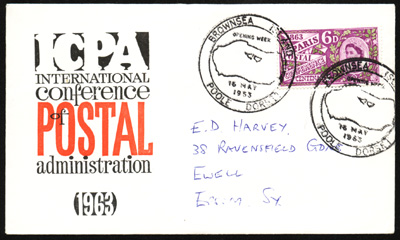 ICPA
INTERNATIONAL
conference
of
POSTAL
administration
1963
BROWNSEA
OPENING WEEK
16 MAY
1963
POOLE DORSET
1863
PARIS
POSTAL
CONFERENCE
CENTENARY
6D
BROWNSEA
16 MAY
1963
POOLE DORSET
E.D HARVEY.
38 RAVENSFIELD
EWELL